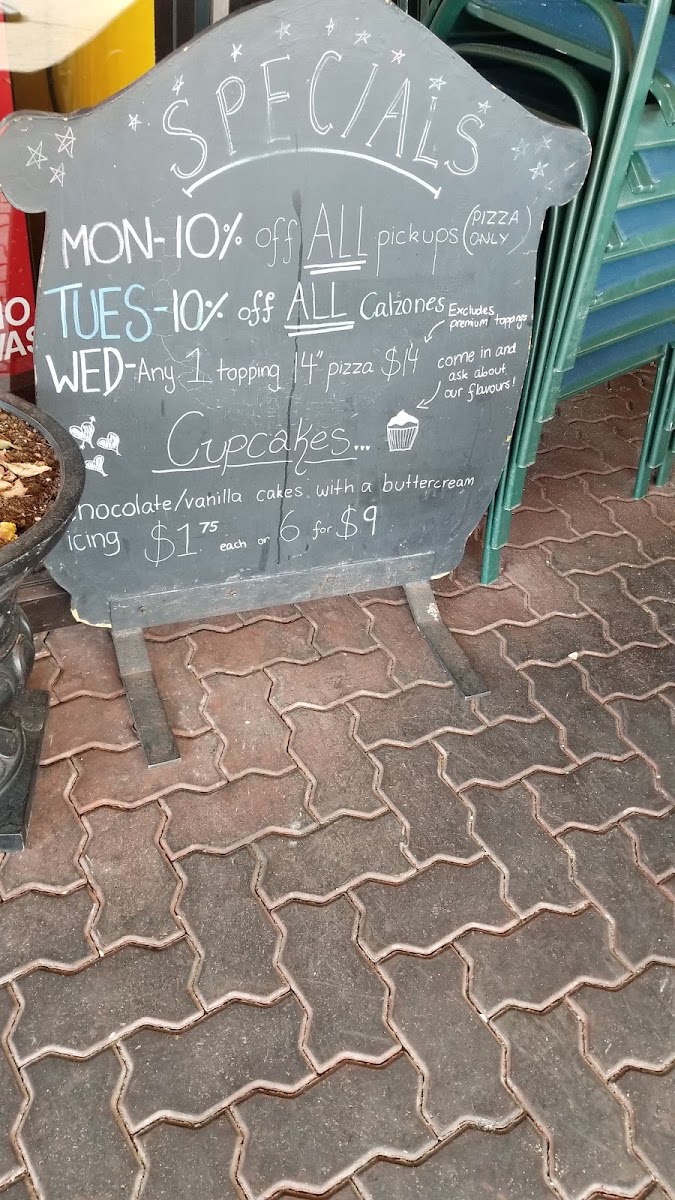 SPECIALS
MON-10% off ALL pickups (PIZZA ONLY)
TUES-10% off ALL Calzones
Excludes
premium toppings
WED-Any 1 topping 14" pizza $14
come in and
ask about
our flavours!
Cupcakes...
chocolate/vanilla cakes with a buttercream
icing $1.75 each or 6 for $9